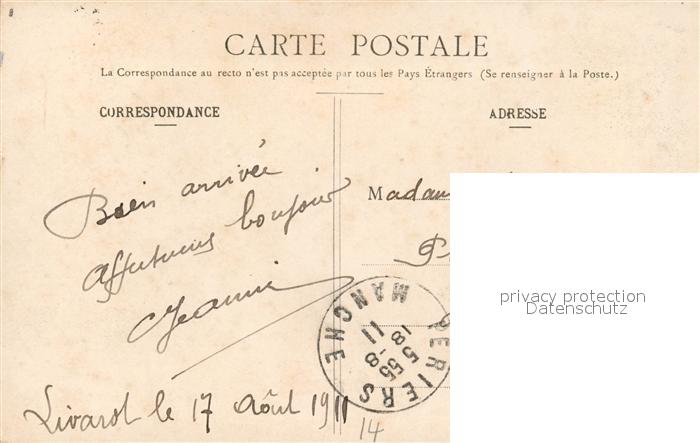 CARTE POSTALE
La Correspondance au recto n'est pas acceptée par tous les Pays Étrangers (Se renseigner à la Poste.)
CORRESPONDANCE
ADRESSE
Bien arrivée
Affectueux bonjour
Jeanne
Livarot le 17 Août 1911
14
Madam
P
PERIERS
MANCHE
18 -8
11
5 55
privacy protection
Datenschutz